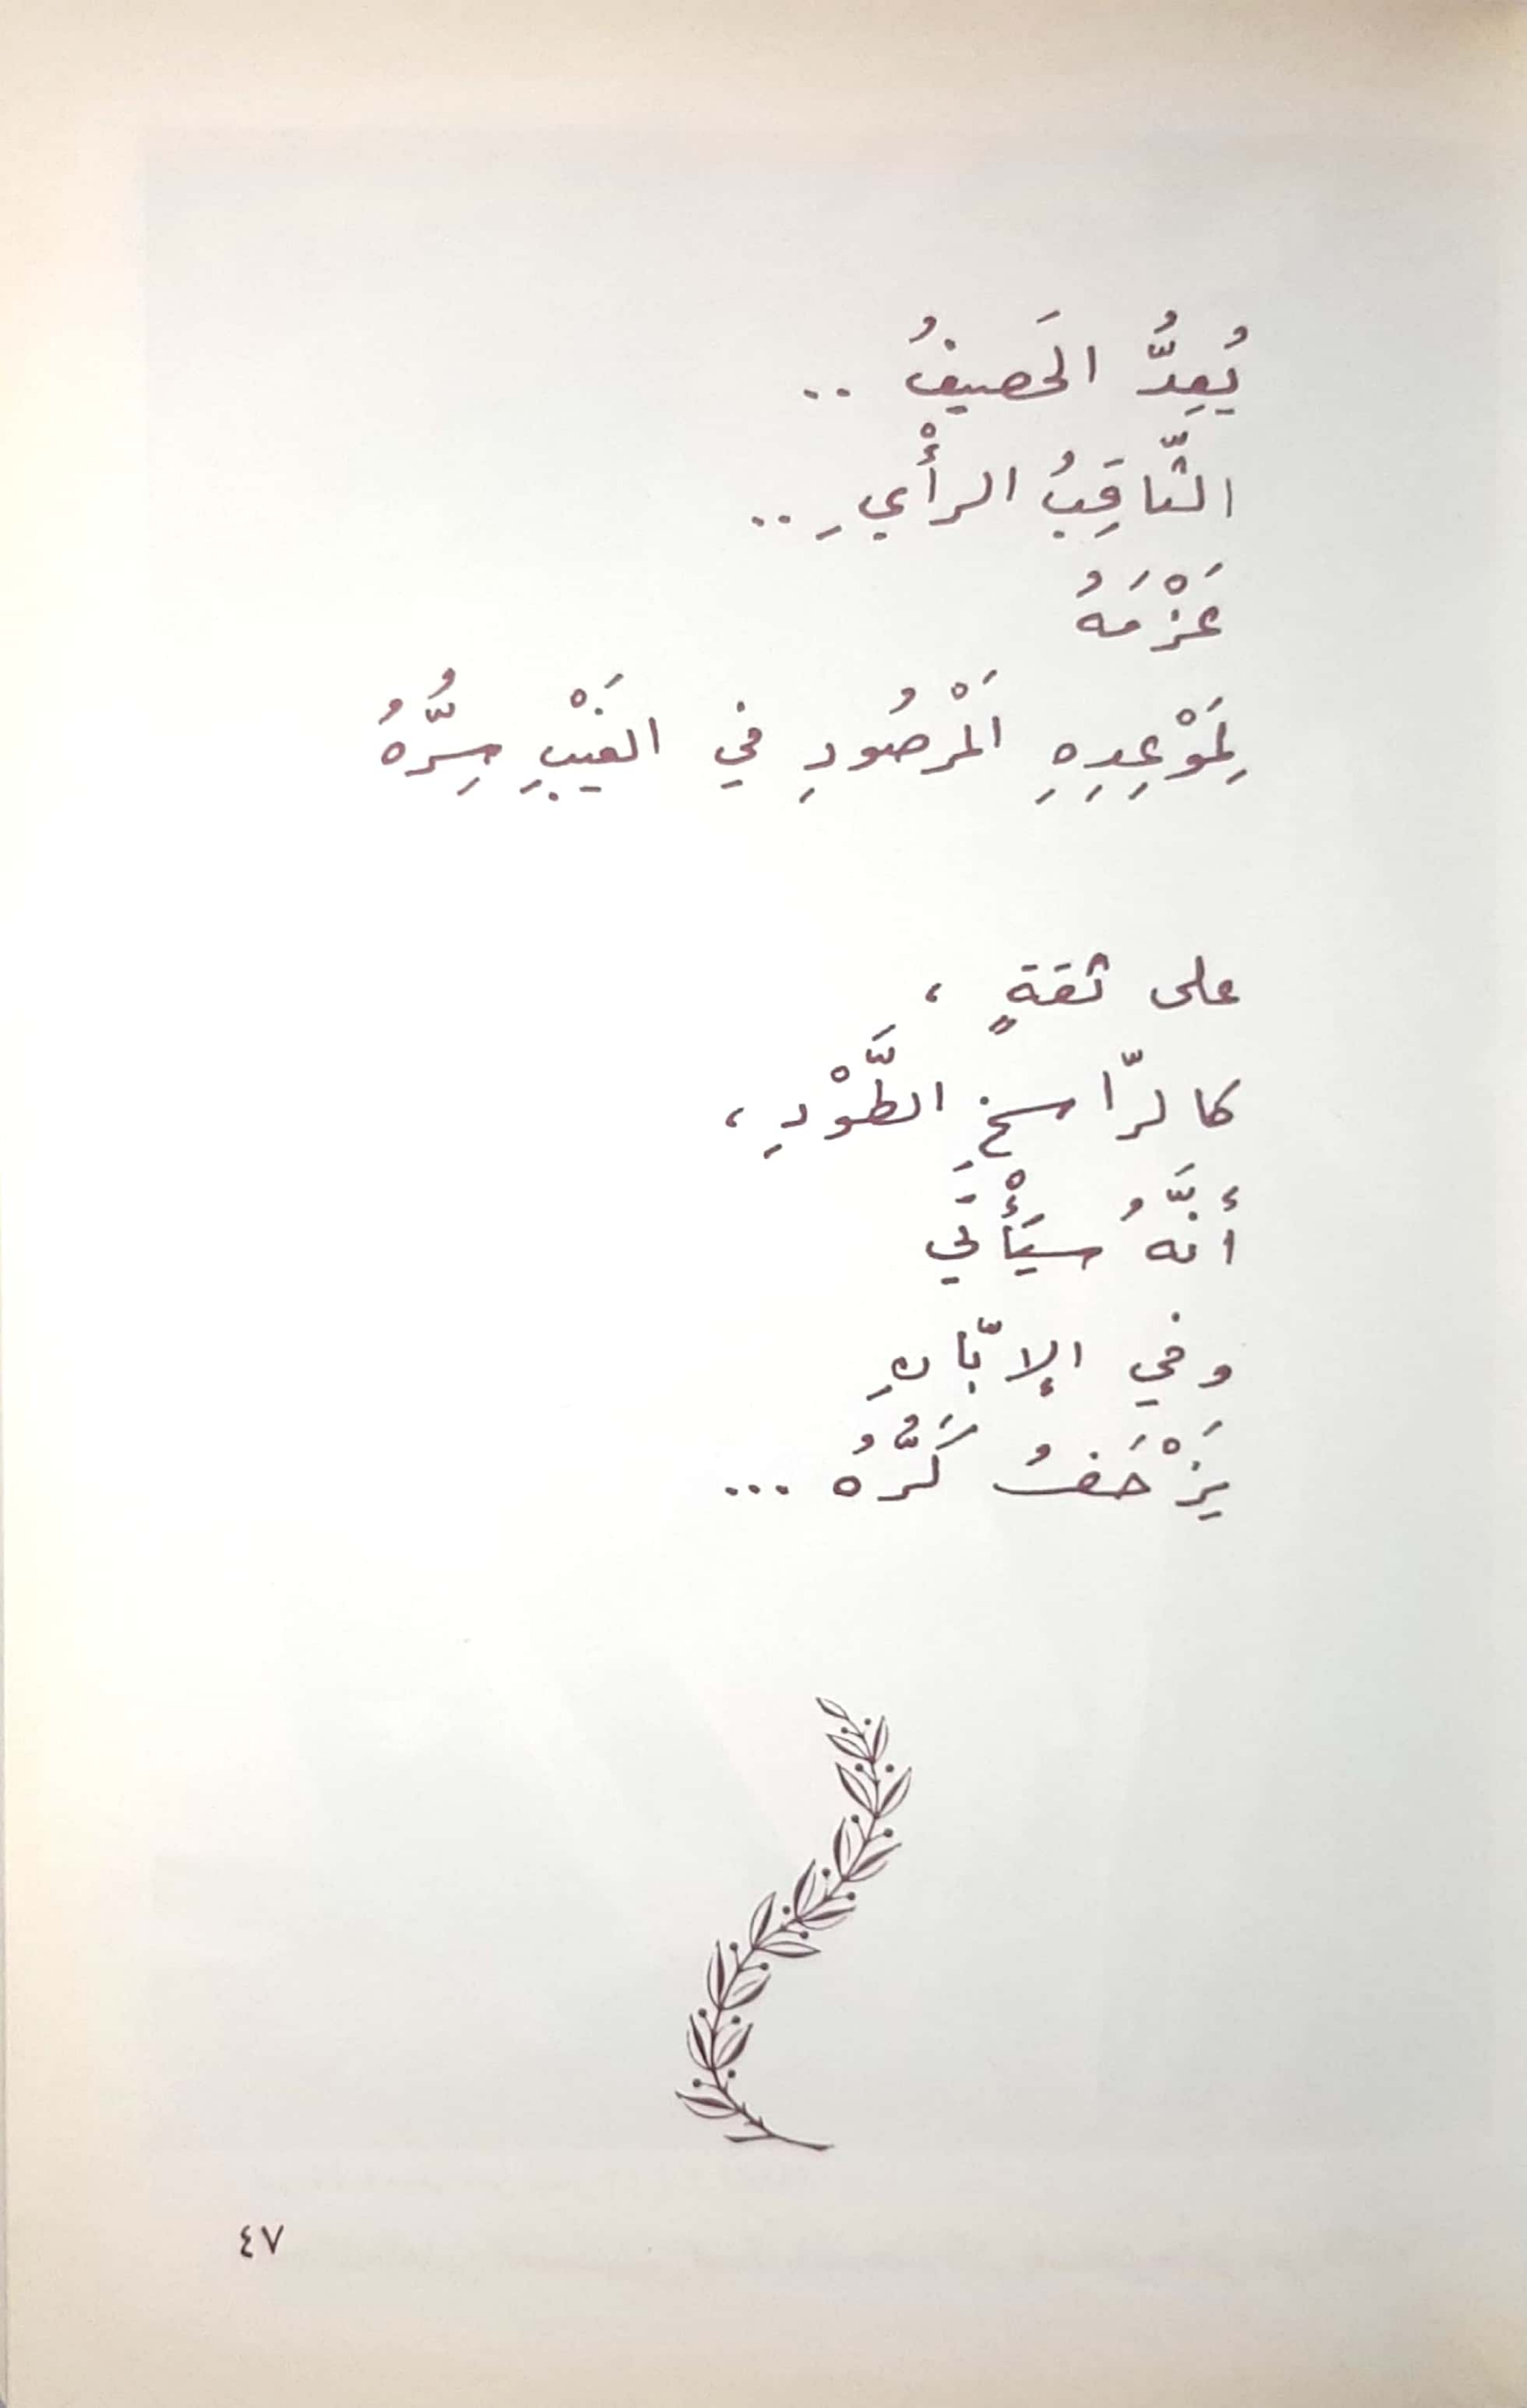 يُعِدُّ الحَصيفُ ..
الثّاقِبُ الرأْيِ ..
عَزْمَهُ
لِمَوْعِدِهِ المَرْصُودِ في الغَيْبِ سِرُّهُ
على ثقَةٍ ،
كالرّاسخِ الطَّوْدِ ،
أنَّهُ سيَأْتَي
وفي الإبّانِ
يَزْحَفُ كَرُّهُ ...
٤٧